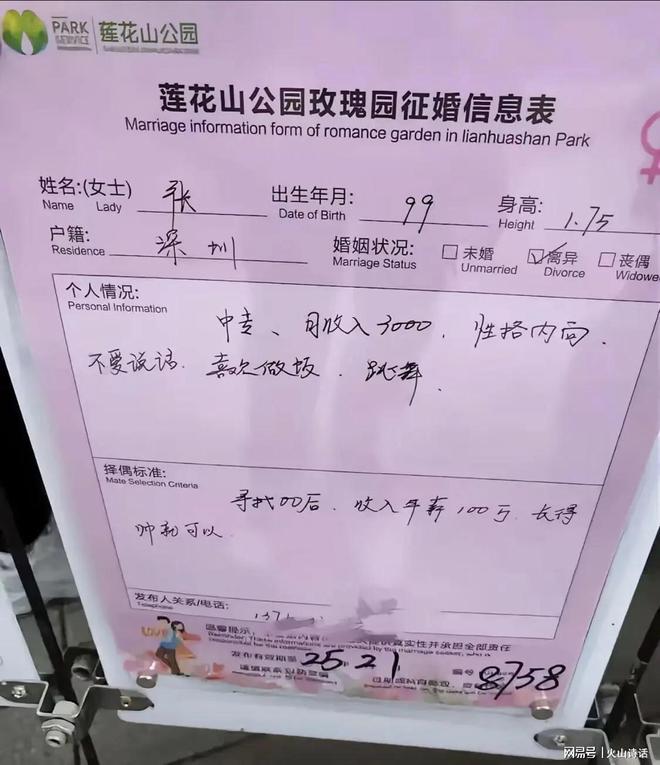 PARK 莲花山公园
SERVICE
莲花山公园玫瑰园征婚信息表
Marriage information form of romance garden in lianhuashan Park
姓名:(女士) 张 出生年月: 99 身高: 1.75
Name Lady Date of Birth Height
户籍: 深圳 婚姻状况: □未婚 ☑离异 □丧偶
Residence Marriage Status Unmarried Divorce Widowe
个人情况:
Personal Information
中专、月收入3000、性格内向、
不爱说话、喜欢做饭、跳舞、
择偶标准:
Mate Selection Criteria
寻找00后、收入年薪100万、长得
帅就可以
发布人关系/电话:
Telephone
温馨提示: 真实性并承担全部责任
发布有效期至 25 21 编号 8758
LOVE
网易号 | 火山诗话